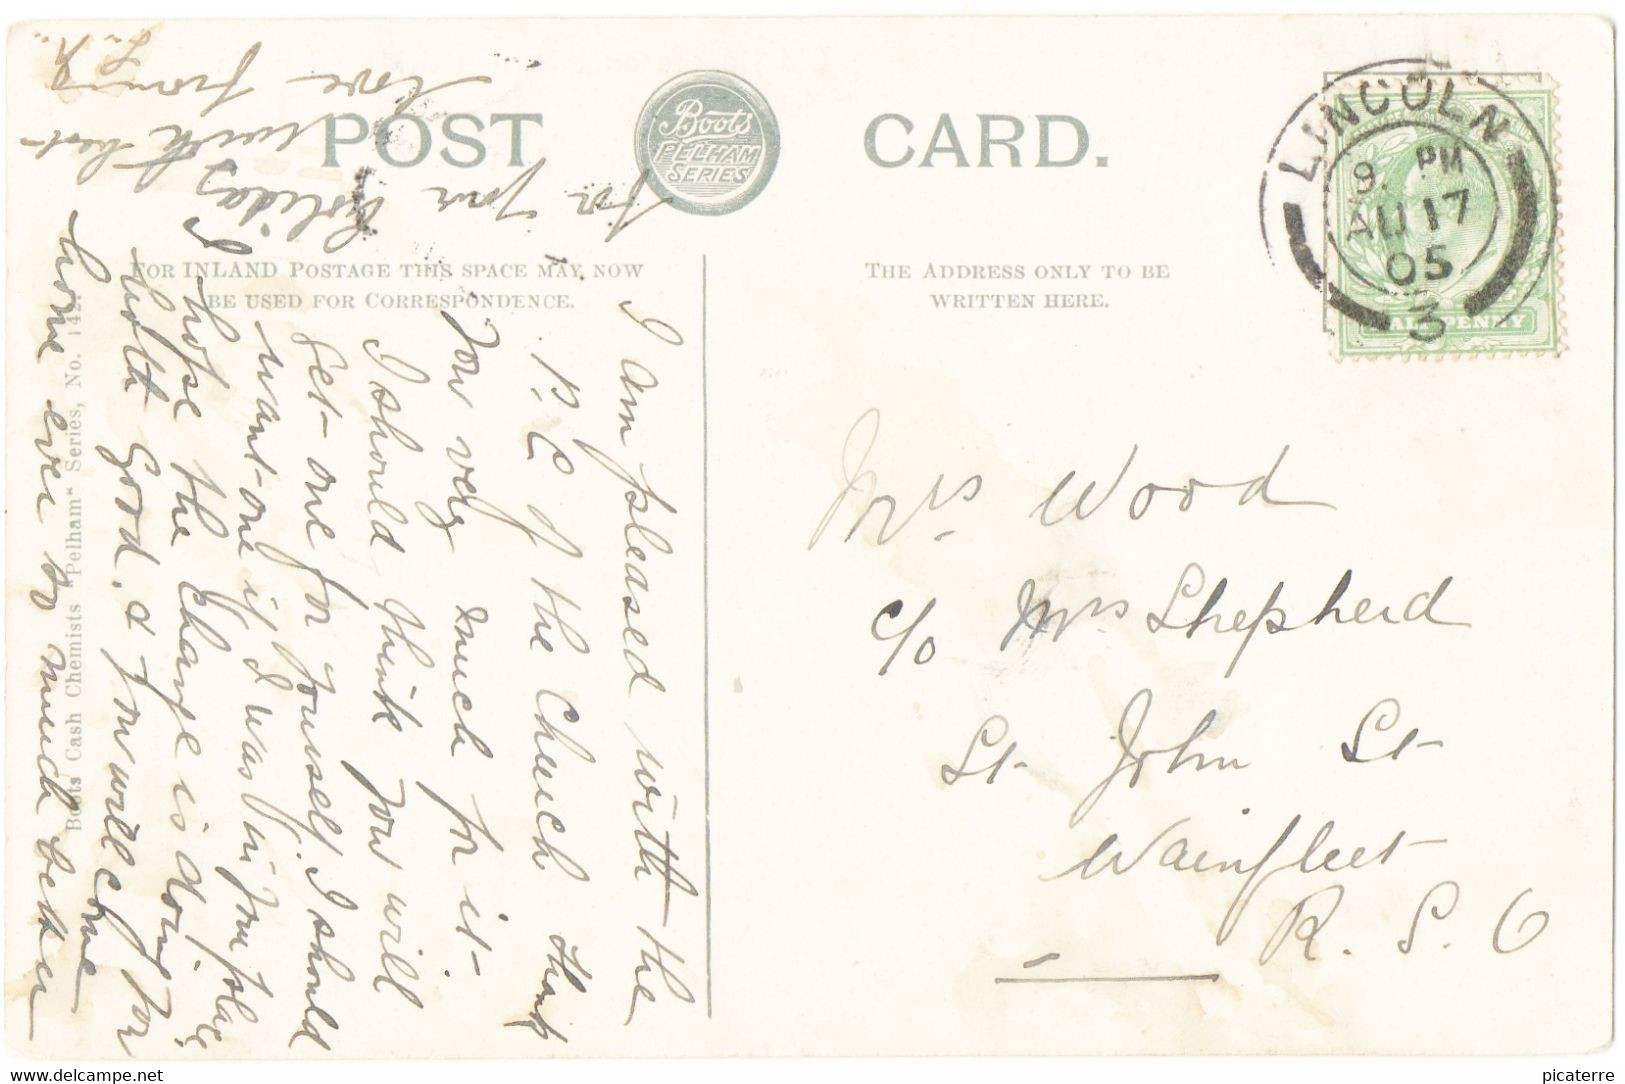 POST CARD.
Boots
PELHAM
SERIES
FOR INLAND POSTAGE THIS SPACE MAY NOW
BE USED FOR CORRESPONDENCE.
THE ADDRESS ONLY TO BE
WRITTEN HERE.
LINCOLN
9. PM
AU 17
05
3
HALFPENNY
Mrs Wood
c/o Mrs Shepherd
St John St
Wainfleet
R. S. O
I am pleased with the
P. C of the Church thank
you very much for it
I should think you will
get one for yourself. I should
want one if I was in your place
I hope the change is doing
both good, & you will come
home ever so much better
for your holiday
with best
love from
Boots Cash Chemists "Pelham" Series, No. 142.
delcampe.net
picaterre